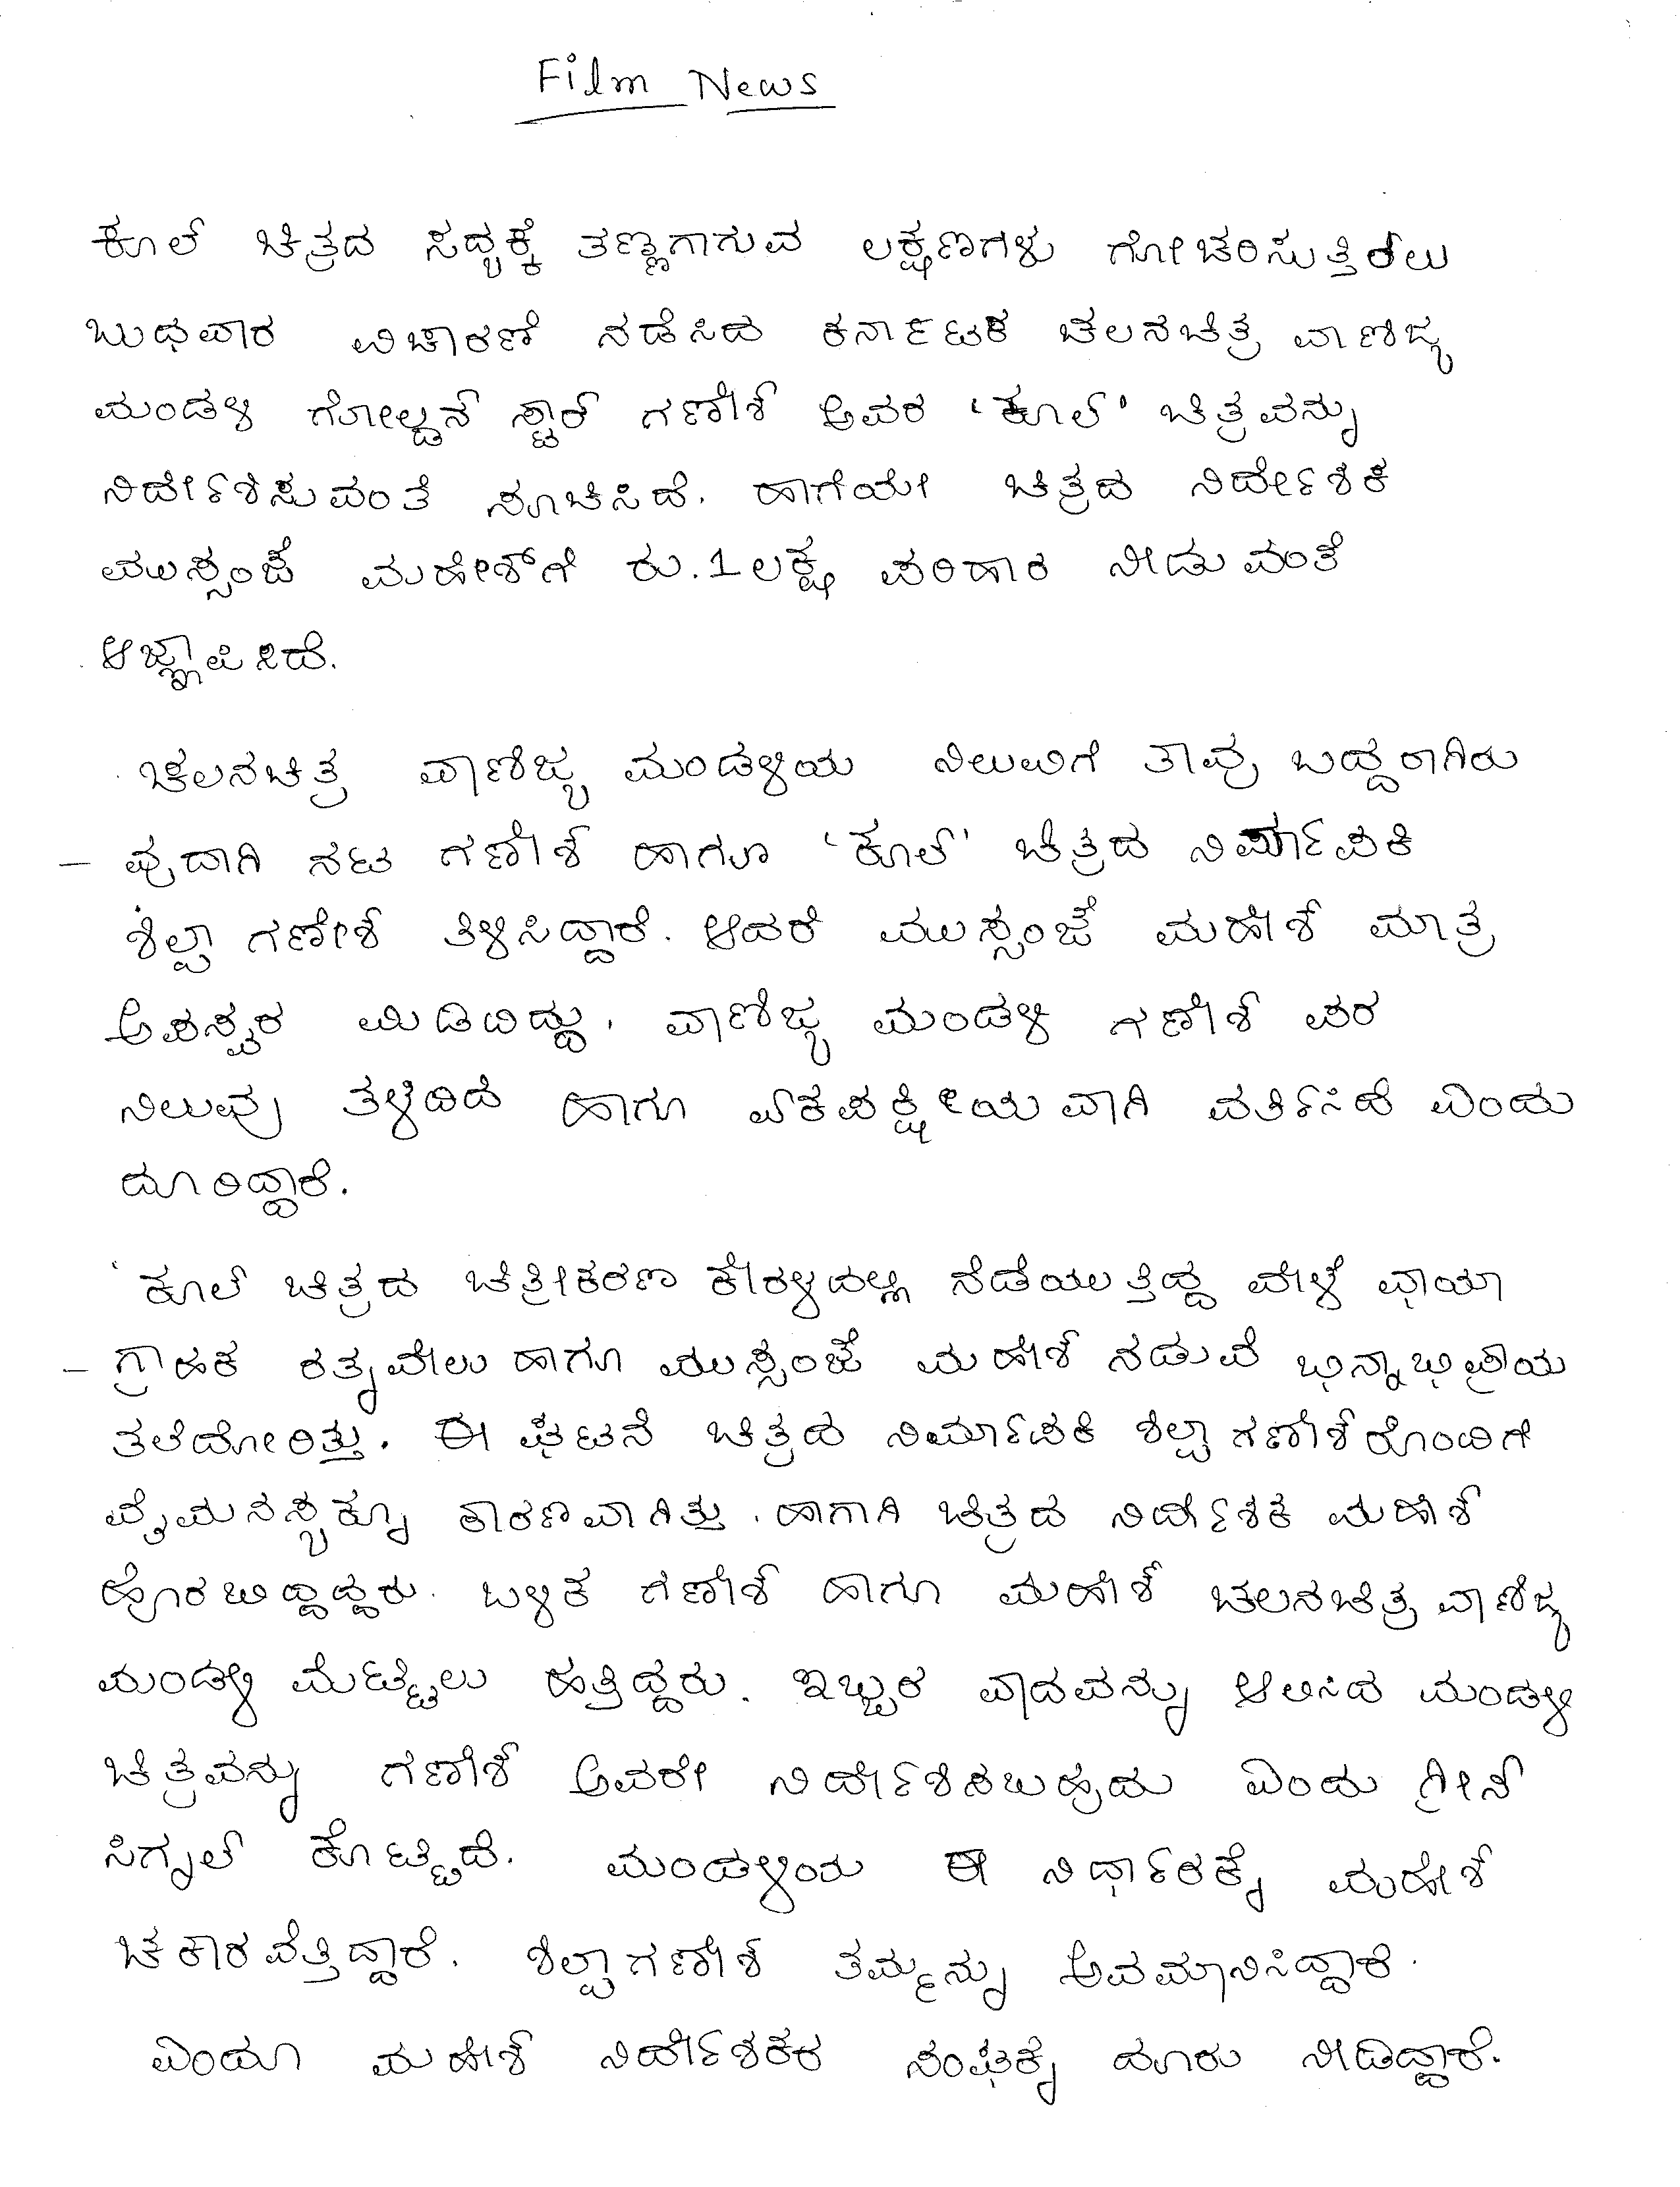 Film News
ಕೂಲ್ ಚಿತ್ರದ ಸದ್ಯಕ್ಕೆ ತಣ್ಣಗಾಗುವ ಲಕ್ಷಣಗಳು ಗೋಚರಿಸುತ್ತಿರಲು
ಬುಧವಾರ ವಿಚಾರಣೆ ನಡೆಸಿದ ಕರ್ನಾಟಕ ಚಲನಚಿತ್ರ ವಾಣಿಜ್ಯ
ಮಂಡಳಿ ಗೋಲ್ಡನ್ ಸ್ಟಾರ್ ಗಣೇಶ್ ಅವರ 'ಕೂಲ್' ಚಿತ್ರವನ್ನು
ನಿರ್ದೇಶಿಸುವಂತೆ ಸೂಚಿಸಿದೆ. ಹಾಗೆಯೇ ಚಿತ್ರದ ನಿರ್ದೇಶಕ
ಮುಸ್ಸಂಜೆ ಮಹೇಶ್‌ಗೆ ರು.1ಲಕ್ಷ ಪರಿಹಾರ ನೀಡುವಂತೆ
ಆಜ್ಞಾಪಿಸಿದೆ.
ಚಲನಚಿತ್ರ ವಾಣಿಜ್ಯ ಮಂಡಳಿಯ ನಿಲುವಿಗೆ ತಾವು ಬದ್ದರಾಗಿರು
- ವುದಾಗಿ ನಟ ಗಣೇಶ್ ಹಾಗೂ 'ಕೂಲ್' ಚಿತ್ರದ ನಿರ್ಮಾಪಕಿ
ಶಿಲ್ಪಾ ಗಣೇಶ್ ತಿಳಿಸಿದ್ದಾರೆ. ಆದರೆ ಮುಸ್ಸಂಜೆ ಮಹೇಶ್ ಮಾತ್ರ
ಅಪಸ್ವರ ಮಿಡಿದಿದ್ದು, ವಾಣಿಜ್ಯ ಮಂಡಳಿ ಗಣೇಶ್ ಪರ
ನಿಲುವು ತಳೆದಿದೆ ಹಾಗೂ ಏಕಪಕ್ಷೀಯವಾಗಿ ವರ್ತಿಸಿದೆ ಎಂದು
ದೂರಿದ್ದಾರೆ.
'ಕೂಲ್ ಚಿತ್ರದ ಚಿತ್ರೀಕರಣ ಕೇರಳದಲ್ಲಿ ನೆಡೆಯುತ್ತಿದ್ದ ವೇಳೆ ಛಾಯಾ
- ಗ್ರಾಹಕ ರತ್ನವೇಲು ಹಾಗೂ ಮುಸ್ಸಂಜೆ ಮಹೇಶ್ ನಡುವೆ ಭಿನ್ನಾಭಿಪ್ರಾಯ
ತಲೆದೋರಿತ್ತು. ಈ ಘಟನೆ ಚಿತ್ರದ ನಿರ್ಮಾಪಕಿ ಶಿಲ್ಪಾ ಗಣೇಶ್‌ರೊಂದಿಗೆ
ವೈಮನಸ್ಯಕ್ಕೂ ಕಾರಣವಾಗಿತ್ತು. ಹಾಗಾಗಿ ಚಿತ್ರದ ನಿರ್ದೇಶಕ ಮಹೇಶ್
ಹೊರಬಿದ್ದಿದ್ದರು. ಬಳಿಕ ಗಣೇಶ್ ಹಾಗೂ ಮಹೇಶ್ ಚಲನಚಿತ್ರ ವಾಣಿಜ್ಯ
ಮಂಡಳಿ ಮೆಟ್ಟಿಲು ಹತ್ತಿದ್ದರು. ಇಬ್ಬರ ವಾದವನ್ನು ಆಲಿಸಿದ ಮಂಡಳಿ
ಚಿತ್ರವನ್ನು ಗಣೇಶ್ ಅವರೇ ನಿರ್ದೇಶಿಸಬಹುದು ಎಂದು ಗ್ರೀನ್
ಸಿಗ್ನಲ್ ಕೊಟ್ಟಿದೆ. ಮಂಡಳಿಯ ಈ ನಿರ್ಧಾರಕ್ಕೆ ಮಹೇಶ್
ಚಕಾರವೆತ್ತಿದ್ದಾರೆ. ಶಿಲ್ಪಾಗಣೇಶ್ ತಮ್ಮನ್ನು ಅವಮಾನಿಸಿದ್ದಾರೆ.
ಎಂದೂ ಮಹೇಶ್ ನಿರ್ದೇಶಕರ ಸಂಘಕ್ಕೆ ದೂರು ನೀಡಿದ್ದಾರೆ.